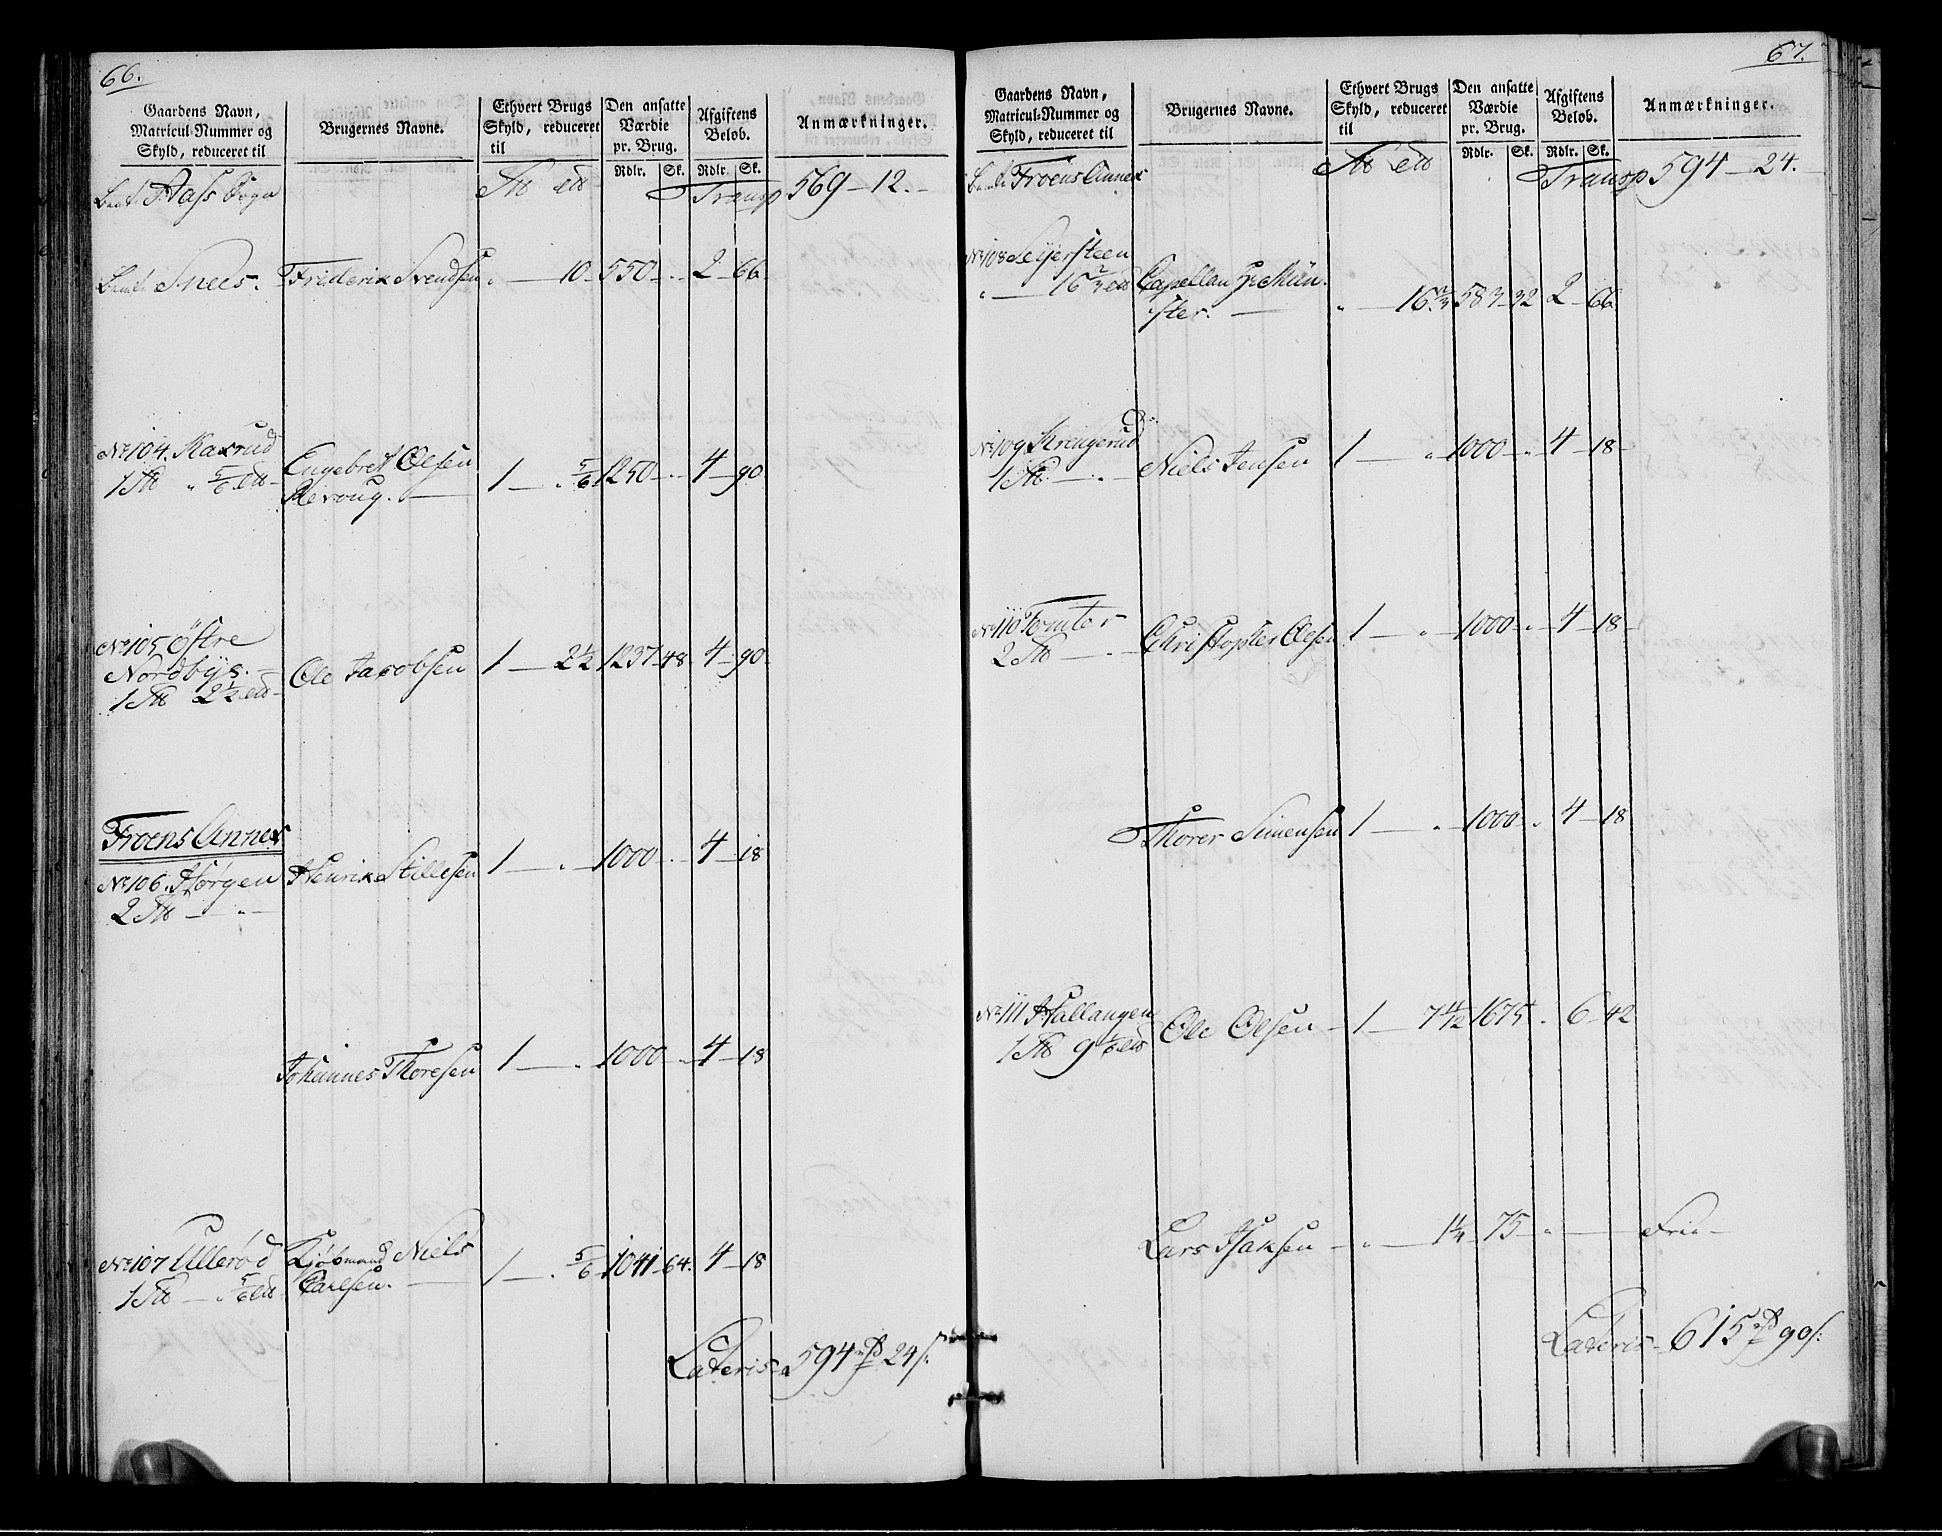 66.
Gaardens Navn, Matricul-Nummer og Skyld, reduceret til
Brugernes Navne.
Ethvert Brugs Skyld, reduceret til
Den ansatte Værdie pr. Brug.
Afgiftens Beløb.
Anmærkninger.
Rdlr. Sk. Rdlr. Sk.
Aass Sogn Transp 569 - 12. -
Snees. Friderik Svendsen " - 10 - 550 - " - 2 - 66
No 104. Kaxrud Engebret Olsen
1 " 5/6 Revoug. 1 - " 5/6 1250 - " - 4 - 90
No 105 Østre
Nordbye. Ole Jacobsen 1 - 2 1/2 1237 - 48 - 4 - 90
1 2 1/2
Froens Annex
No 106. Hørgen Henrik Stillesen 1 - " - 1000 - " - 4 - 18
2 - " -
Johannes Thoresen 1 - " - 1000 - " - 4 - 18
No 107 Ullerød Kjøbmand Niels
1 - " 5/6 Carlsen. 1 - " 5/6 1041 - 64. 4 - 18
Lateris - 594 24
67.
Gaardens Navn, Matricul-Nummer og Skyld, reduceret til
Brugernes Navne.
Ethvert Brugs Skyld, reduceret til
Den ansatte Værdie pr. Brug.
Afgiftens Beløb.
Anmærkninger.
Rdlr. Sk. Rdlr. Sk.
Froens Annex Transp 594 - 24.
No 108 Seyersteen
" - 16 2/3 Capellan Hr Mün-
ster. " - 16 2/3 583 - 32 2 - 66
No 109 Krengerud Niels Jensen 1 - " 1000 - " - 4 - 18
1 - " -
No 110 Tomter Christopher Olsen 1 - " 1000 - " - 4 - 18
2 - " -
Thorer Simensen 1 - " - 1000 - " 4 - 18
No 111 Hallangen Ole Olsen - 1 - 7 11/12 1675 " 6 - 42
1 9 1/6
Lars Isaksen - " - 1 1/4 75 " - Frie -
Lateris - 615 90